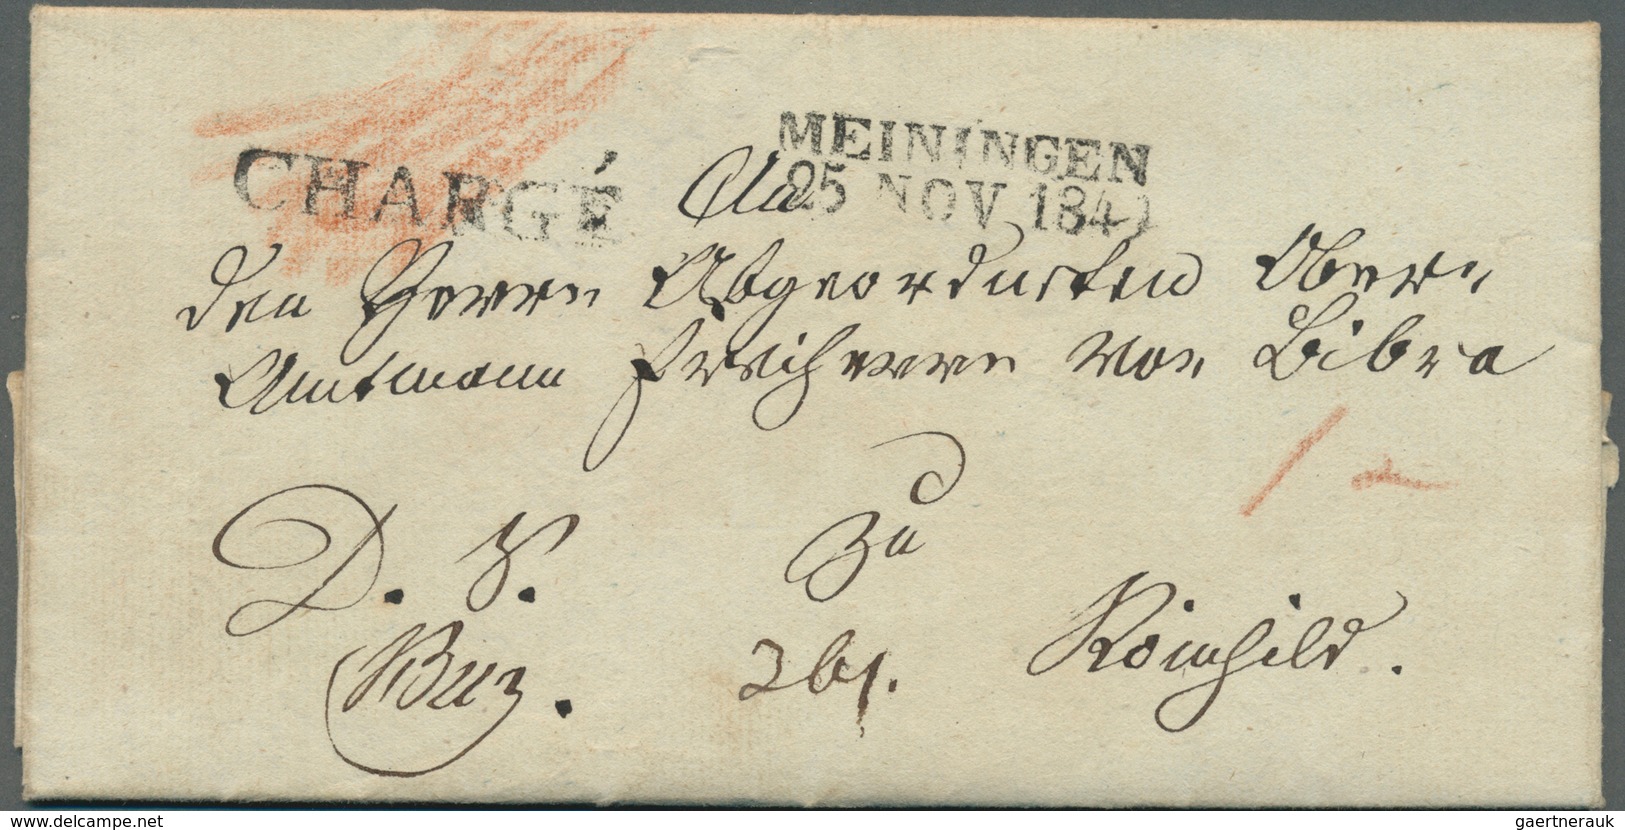 MEININGEN
25 NOV 184
CHARGÉ
An
den Herrn Abgeordneten Ober-
Amtmann Freiherrn von Bibra
D. S.
zu
Römhild.
www.delcampe.net
gaertnerauk